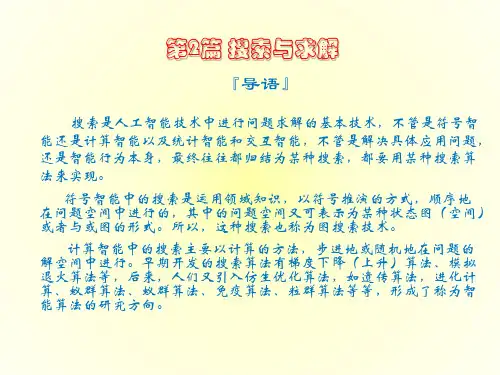 第2篇 搜索与求解
『导语』
搜索是人工智能技术中进行问题求解的基本技术，不管是符号智
能还是计算智能以及统计智能和交互智能，不管是解决具体应用问题，
还是智能行为本身，最终往往都归结为某种搜索，都要用某种搜索算
法来实现。
符号智能中的搜索是运用领域知识，以符号推演的方式，顺序地
在问题空间中进行的，其中的问题空间又可表示为某种状态图（空间）
或者与或图的形式。所以，这种搜索也称为图搜索技术。
计算智能中的搜索主要以计算的方法，步进地或随机地在问题的
解空间中进行。早期开发的搜索算法有梯度下降（上升）算法、模拟
退火算法等，后来，人们又引入仿生优化算法，如遗传算法，进化计
算、蚁群算法、蚁群算法、免疫算法、粒群算法等等，形成了称为智
能算法的研究方向。